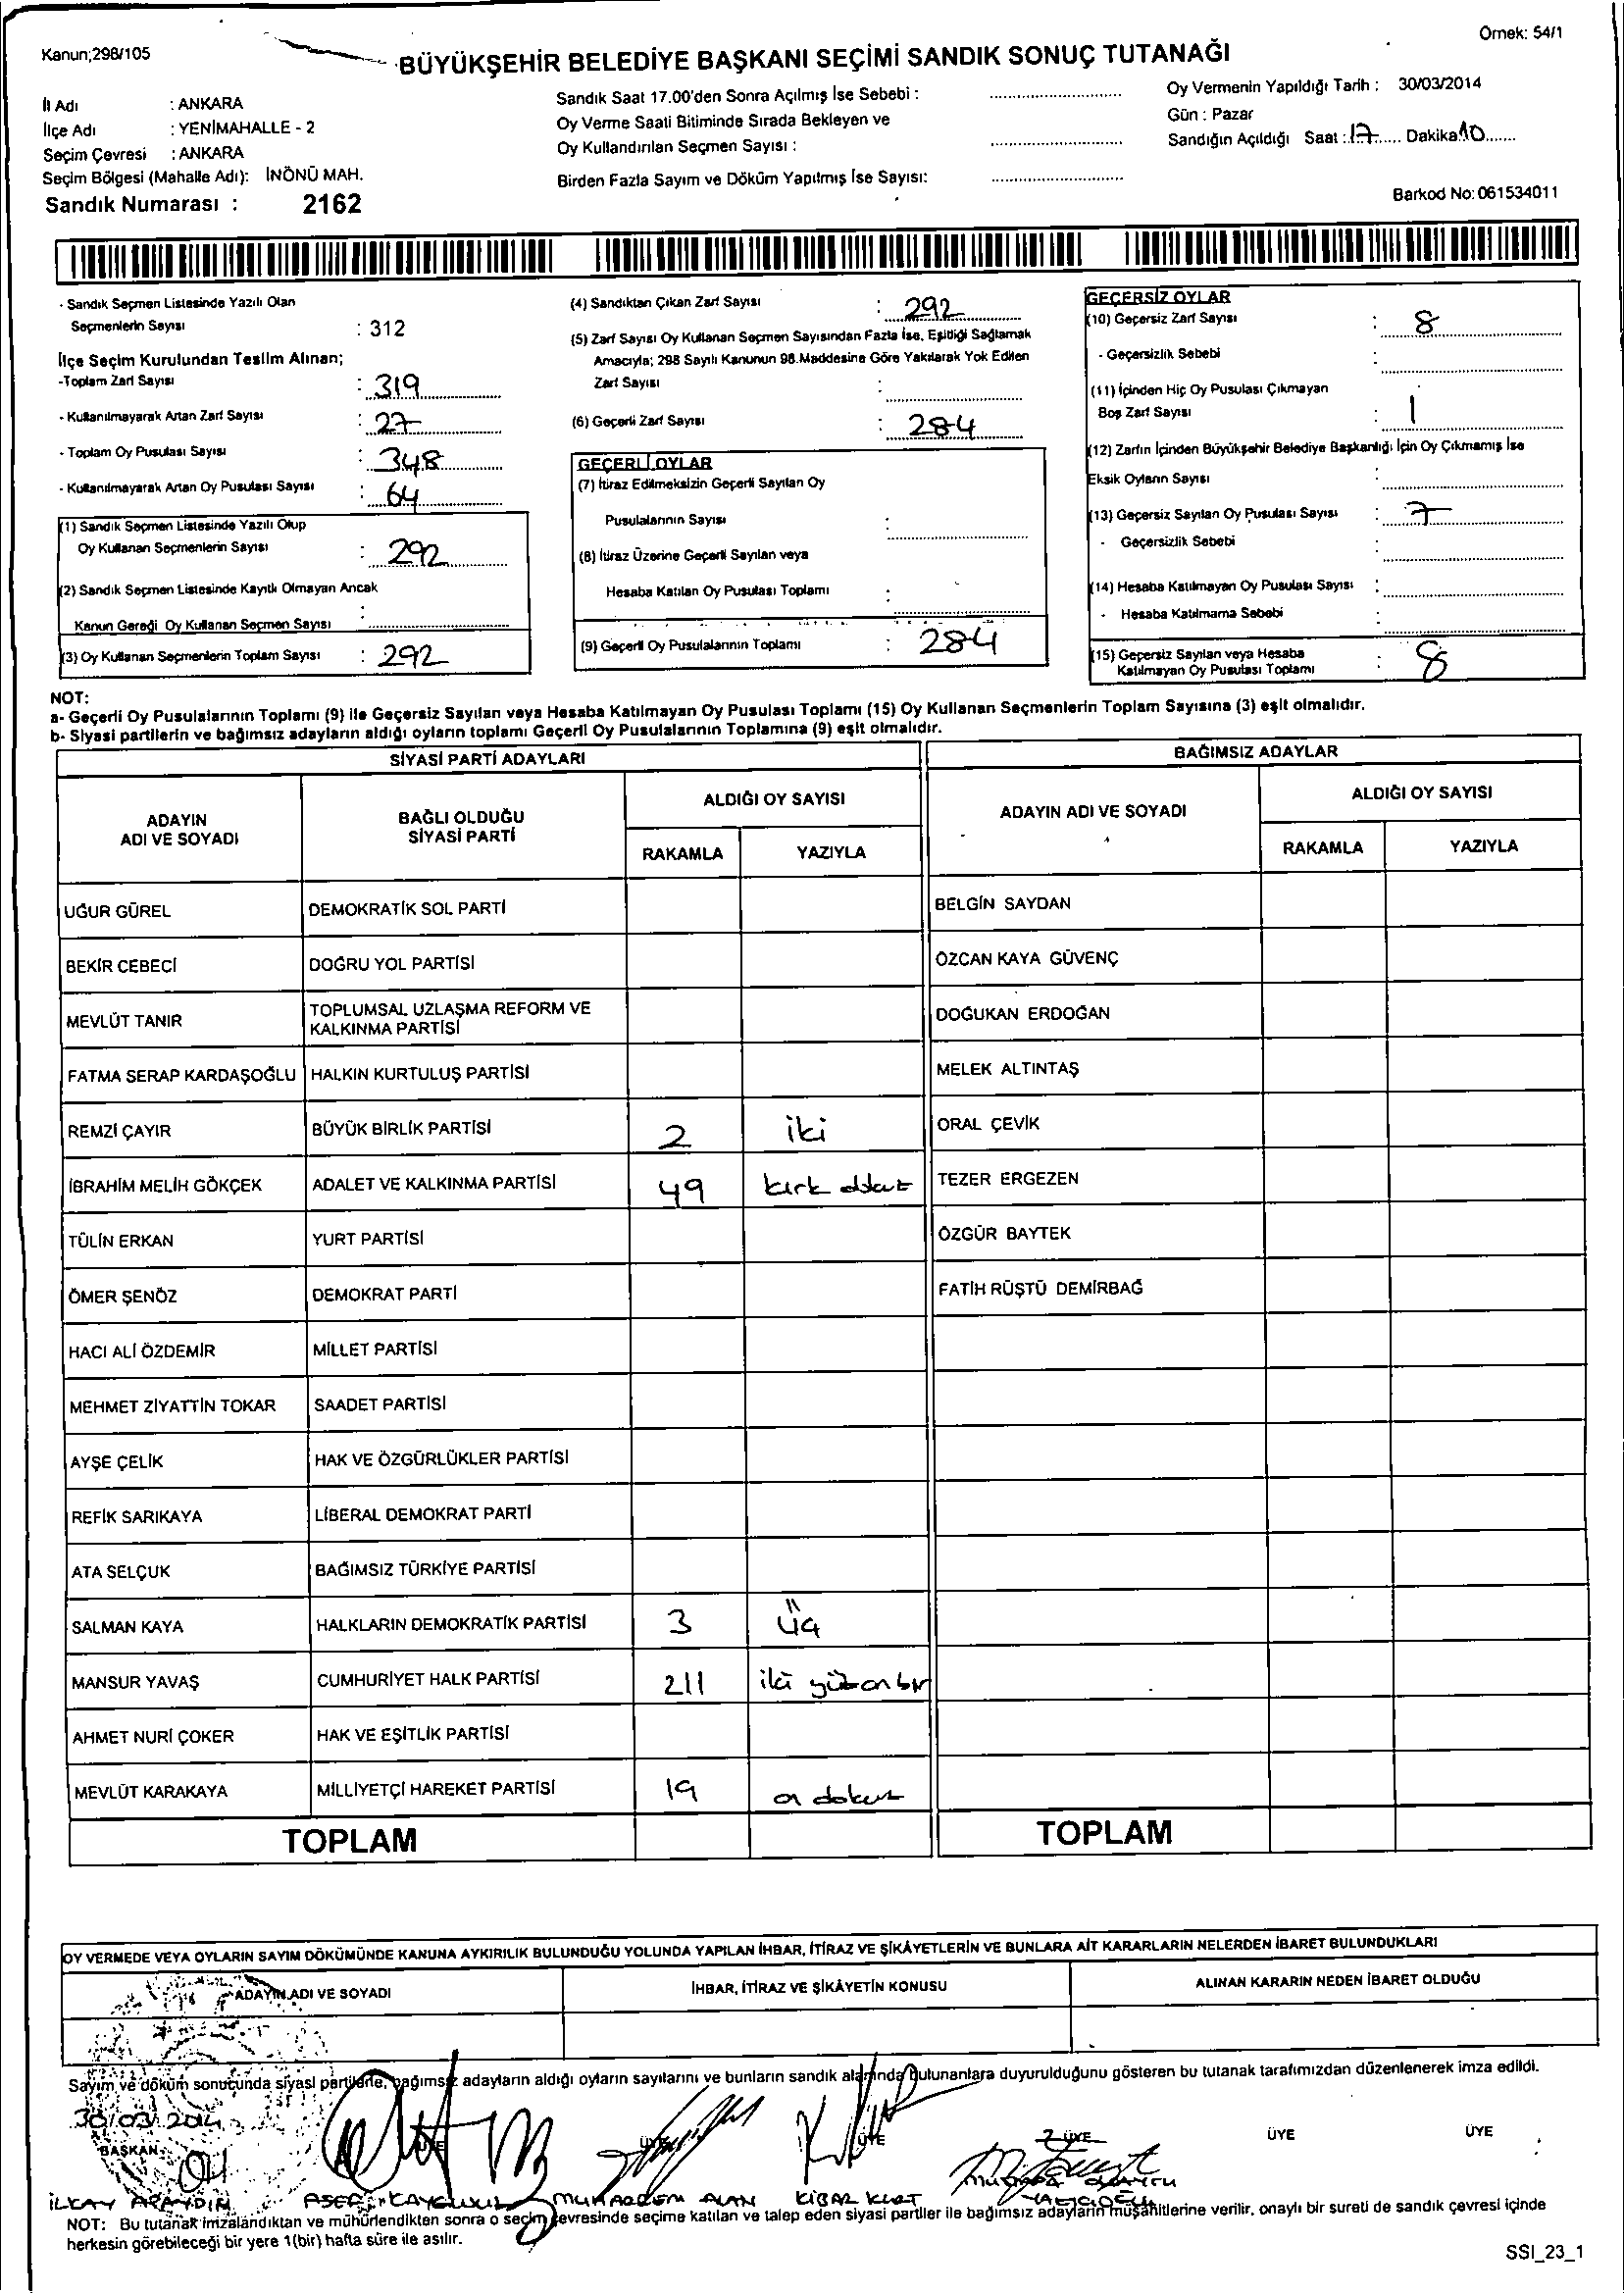 Kanun;298/105
Örnek: 54/1
BÜYÜKŞEHİR BELEDİYE BAŞKANI SEÇİMİ SANDIK SONUÇ TUTANAĞI
İl Adı : ANKARA
İlçe Adı : YENİMAHALLE - 2
Seçim Çevresi : ANKARA
Seçim Bölgesi (Mahalle Adı): İNÖNÜ MAH.
Sandık Numarası : 2162
Sandık Saat 17.00'den Sonra Açılmış İse Sebebi :
Oy Verme Saati Bitiminde Sırada Bekleyen ve
Oy Kullandırılan Seçmen Sayısı :
Birden Fazla Sayım ve Döküm Yapılmış İse Sayısı:
Oy Vermenin Yapıldığı Tarih : 30/03/2014
Gün : Pazar
Sandığın Açıldığı Saat : 17 Dakika 10
Barkod No: 061534011
- Sandık Seçmen Listesinde Yazılı Olan
Seçmenlerin Sayısı : 312
İlçe Seçim Kurulundan Teslim Alınan;
-Toplam Zarf Sayısı : 319
- Kullanılmayarak Artan Zarf Sayısı : 27
- Toplam Oy Pusulası Sayısı : 348
- Kullanılmayarak Artan Oy Pusulası Sayısı : 64
(1) Sandık Seçmen Listesinde Yazılı Olup
Oy Kullanan Seçmenlerin Sayısı : 292
(2) Sandık Seçmen Listesinde Kayıtlı Olmayan Ancak
Kanun Gereği Oy Kullanan Seçmen Sayısı :
(3) Oy Kullanan Seçmenlerin Toplam Sayısı : 292
(4) Sandıktan Çıkan Zarf Sayısı : 292
(5) Zarf Sayısı Oy Kullanan Seçmen Sayısından Fazla İse, Eşitliği Sağlamak
Amacıyla; 298 Sayılı Kanunun 98.Maddesine Göre Yakılarak Yok Edilen
Zarf Sayısı :
(6) Geçerli Zarf Sayısı : 284
GEÇERLİ OYLAR
(7) İtiraz Edilmeksizin Geçerli Sayılan Oy
Pusulalarının Sayısı :
(8) İtiraz Üzerine Geçerli Sayılan veya
Hesaba Katılan Oy Pusulası Toplamı :
(9) Geçerli Oy Pusulalarının Toplamı : 284
GEÇERSİZ OYLAR
(10) Geçersiz Zarf Sayısı : 8
- Geçersizlik Sebebi :
(11) İçinden Hiç Oy Pusulası Çıkmayan
Boş Zarf Sayısı : 1
(12) Zarfın İçinden Büyükşehir Belediye Başkanlığı İçin Oy Çıkmamış İse
Eksik Oyların Sayısı :
(13) Geçersiz Sayılan Oy Pusulası Sayısı : 7
- Geçersizlik Sebebi :
(14) Hesaba Katılmayan Oy Pusulası Sayısı :
- Hesaba Katılmama Sebebi :
(15) Geçersiz Sayılan veya Hesaba
Katılmayan Oy Pusulası Toplamı : 8
NOT:
a- Geçerli Oy Pusulalarının Toplamı (9) ile Geçersiz Sayılan veya Hesaba Katılmayan Oy Pusulası Toplamı (15) Oy Kullanan Seçmenlerin Toplam Sayısına (3) eşit olmalıdır.
b- Siyasi partilerin ve bağımsız adayların aldığı oyların toplamı Geçerli Oy Pusulalarının Toplamına (9) eşit olmalıdır.
SİYASİ PARTİ ADAYLARI
BAĞIMSIZ ADAYLAR
ADAYIN ADI VE SOYADI
BAĞLI OLDUĞU SİYASİ PARTİ
ALDIĞI OY SAYISI
RAKAMLA YAZIYLA
ADAYIN ADI VE SOYADI
ALDIĞI OY SAYISI
RAKAMLA YAZIYLA
UĞUR GÜREL DEMOKRATİK SOL PARTİ BELGİN SAYDAN
BEKİR CEBECİ DOĞRU YOL PARTİSİ ÖZCAN KAYA GÜVENÇ
MEVLÜT TANIR TOPLUMSAL UZLAŞMA REFORM VE KALKINMA PARTİSİ DOĞUKAN ERDOĞAN
FATMA SERAP KARDAŞOĞLU HALKIN KURTULUŞ PARTİSİ MELEK ALTINTAŞ
REMZİ ÇAYIR BÜYÜK BİRLİK PARTİSİ 2 iki ORAL ÇEVİK
İBRAHİM MELİH GÖKÇEK ADALET VE KALKINMA PARTİSİ 49 kırk dokuz TEZER ERGEZEN
TÜLİN ERKAN YURT PARTİSİ ÖZGÜR BAYTEK
ÖMER ŞENÖZ DEMOKRAT PARTİ FATİH RÜŞTÜ DEMİRBAĞ
HACI ALİ ÖZDEMİR MİLLET PARTİSİ
MEHMET ZİYATTİN TOKAR SAADET PARTİSİ
AYŞE ÇELİK HAK VE ÖZGÜRLÜKLER PARTİSİ
REFİK SARIKAYA LİBERAL DEMOKRAT PARTİ
ATA SELÇUK BAĞIMSIZ TÜRKİYE PARTİSİ
SALMAN KAYA HALKLARIN DEMOKRATİK PARTİSİ 3 üç
MANSUR YAVAŞ CUMHURİYET HALK PARTİSİ 211 iki yüz on bir
AHMET NURİ ÇOKER HAK VE EŞİTLİK PARTİSİ
MEVLÜT KARAKAYA MİLLİYETÇİ HAREKET PARTİSİ 19 on dokuz
TOPLAM TOPLAM
OY VERMEDE VEYA OYLARIN SAYIM DÖKÜMÜNDE KANUNA AYKIRILIK BULUNDUĞU YOLUNDA YAPILAN İHBAR, İTİRAZ VE ŞİKÂYETLERİN VE BUNLARA AİT KARARLARIN NELERDEN İBARET BULUNDUKLARI
ADAYIN ADI VE SOYADI İHBAR, İTİRAZ VE ŞİKÂYETİN KONUSU ALINAN KARARIN NEDEN İBARET OLDUĞU
Sayım ve döküm sonucunda siyasi partilerle, bağımsız adayların aldığı oyların sayılarını ve bunların sandık alanında bulunanlara duyurulduğunu gösteren bu tutanak tarafımızdan düzenlenerek imza edildi.
30/03/2014
BAŞKAN ÜYE ÜYE ÜYE ÜYE ÜYE ÜYE
İLKAY MUHARREM ALAN KİBAR KURT
NOT: Bu tutanak imzalandıktan ve mühürlendikten sonra o seçim çevresinde seçime katılan ve talep eden siyasi partiler ile bağımsız adayların müşahitlerine verilir, onaylı bir sureti de sandık çevresi içinde
herkesin görebileceği bir yere 1(bir) hafta süre ile asılır.
SSI_23_1